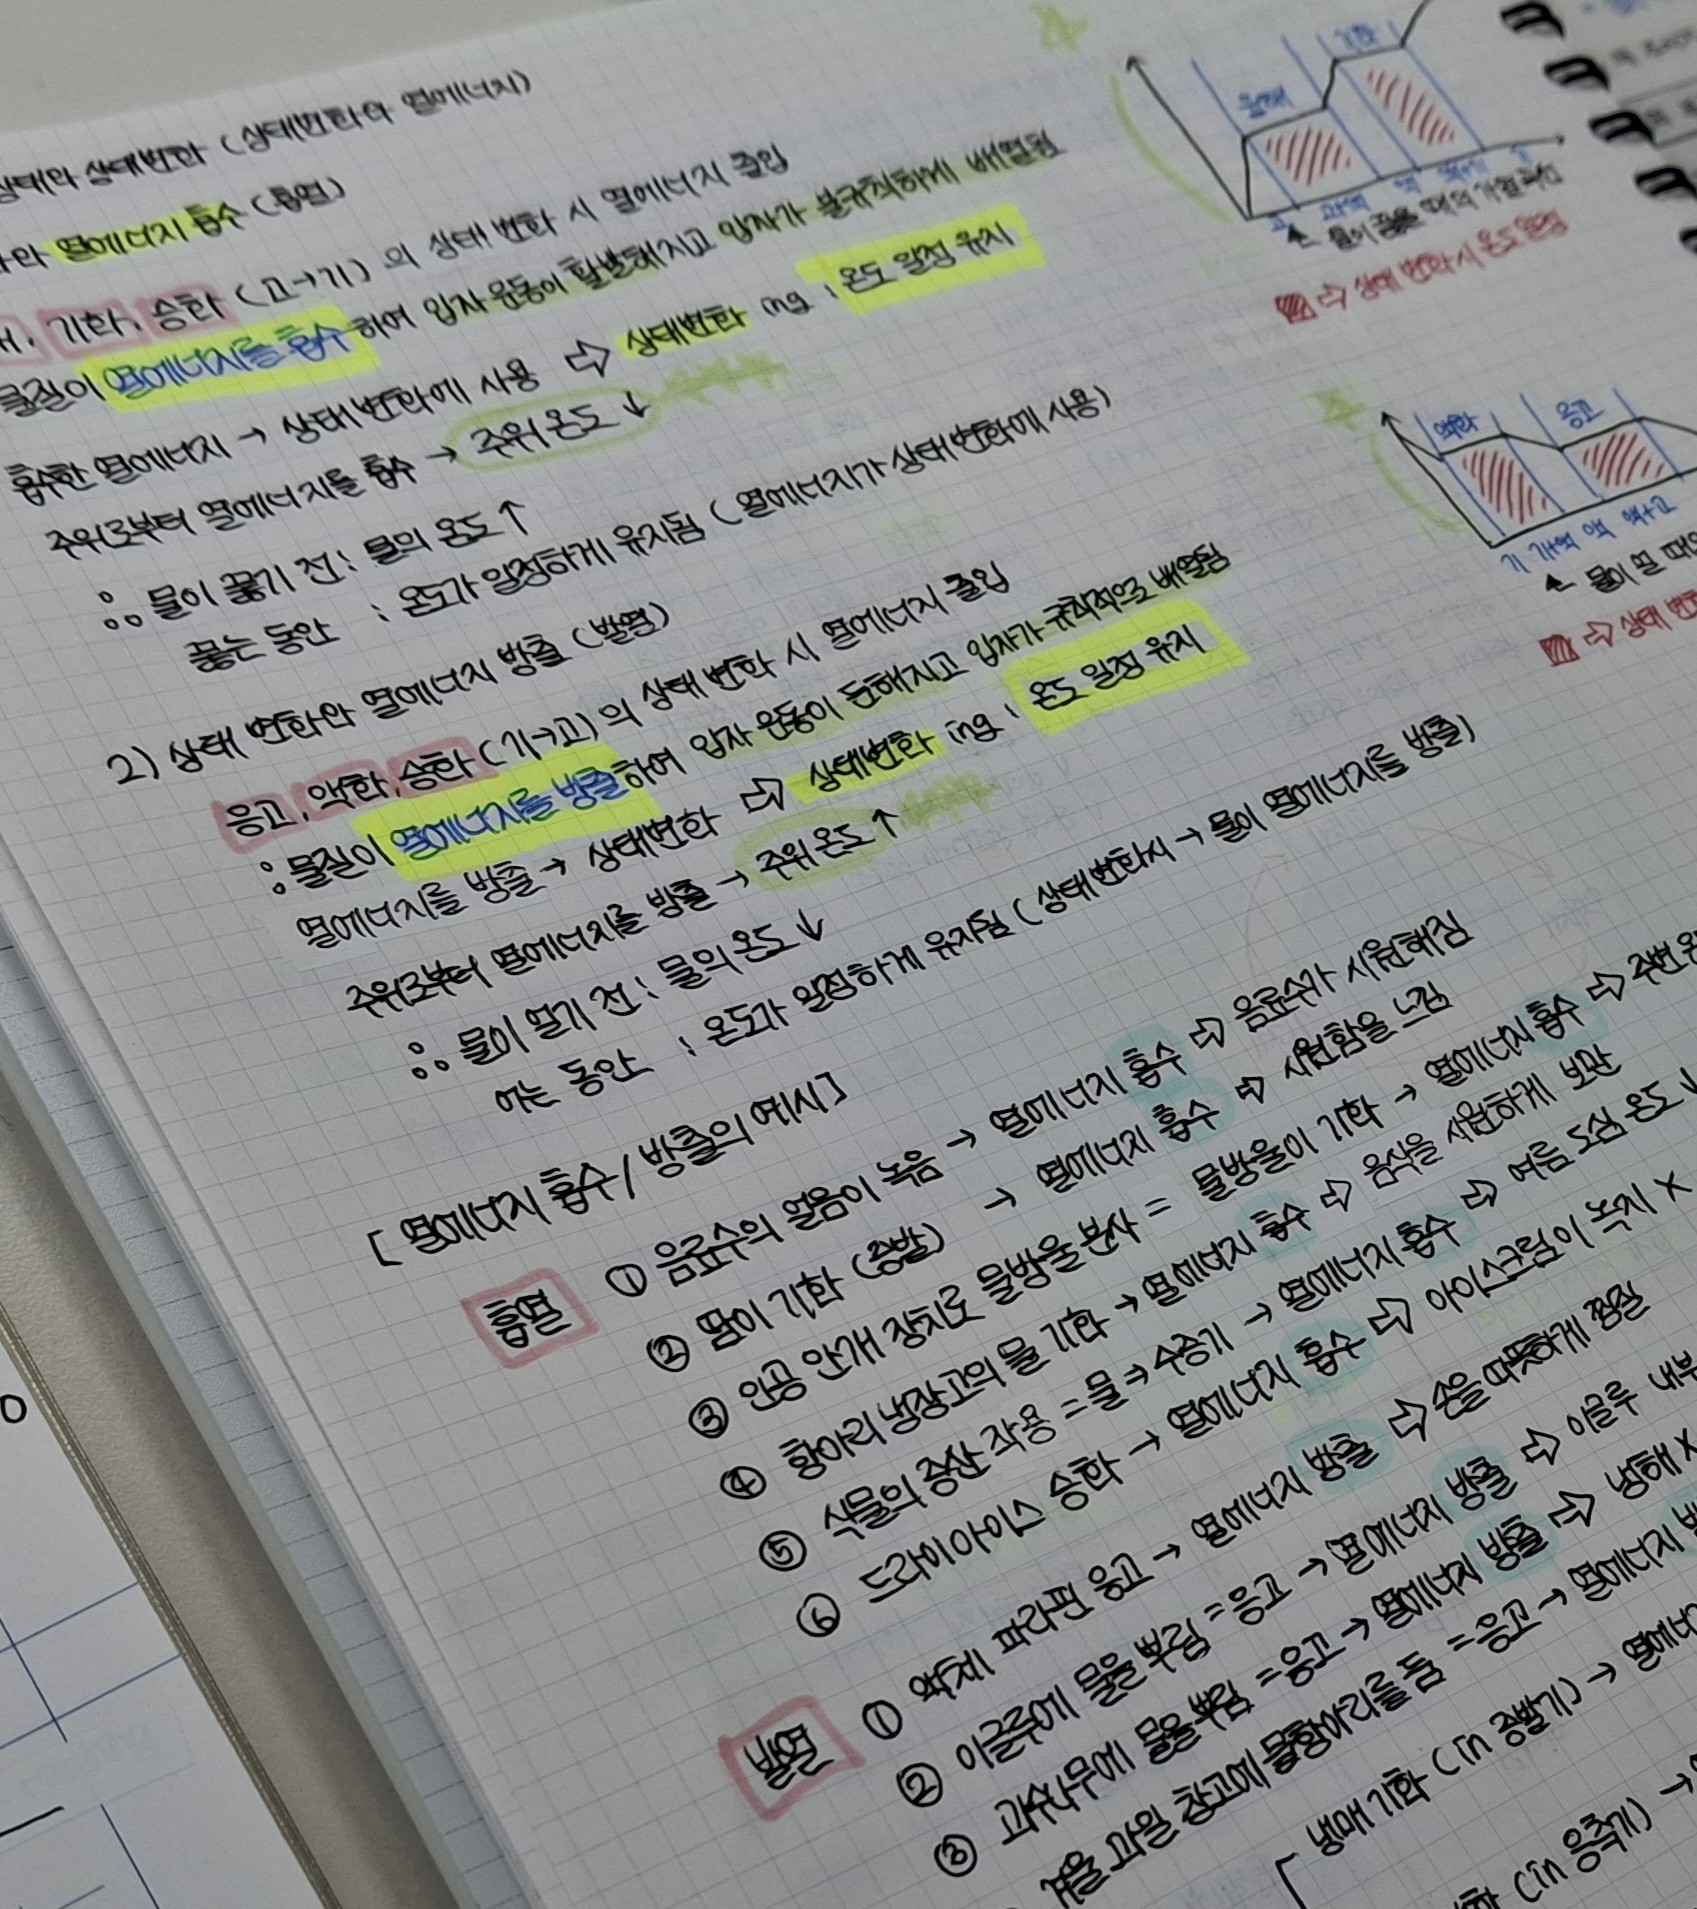 상태와 상태변화 (상태변화와 열에너지)
열에너지 흡수 (흡열)
기화, 승화 (고→기) 의 상태 변화 시 열에너지 출입
물질이 열에너지를 흡수하여 입자 운동이 활발해지고 입자가 불규칙하게 배열됨
흡수한 열에너지 → 상태변화에 사용 ⇨ 상태변화 ing : 온도 일정 유지
주위로부터 열에너지를 흡수 → 주위 온도 ↓
∴ 물이 끓기 전 : 물의 온도 ↑
끓는 동안 : 온도가 일정하게 유지됨 (열에너지가 상태변화에 사용)
2) 상태 변화와 열에너지 방출 (발열)
응고, 액화, 승화 (기→고)의 상태 변화 시 열에너지 출입
: 물질이 열에너지를 방출하여 입자 운동이 둔해지고 입자가 규칙적으로 배열됨
열에너지를 방출 → 상태변화 ⇨ 상태변화 ing : 온도 일정 유지
주위로부터 열에너지를 방출 → 주위 온도 ↑
∴ 물이 얼기 전 : 물의 온도 ↓
어는 동안 : 온도가 일정하게 유지됨 (상태변화시 → 물이 열에너지를 방출)
[ 열에너지 흡수 / 방출의 예시 ]
흡열 ① 음료수의 얼음이 녹음 → 열에너지 흡수 ⇨ 음료수가 시원해짐
② 땀이 기화 (증발) → 열에너지 흡수 ⇨ 시원함을 느낌
③ 인공 안개 장치로 물방울 분사 = 물방울이 기화 → 열에너지 흡수 ⇨ 주변
④ 항아리 냉장고의 물 기화 → 열에너지 흡수 ⇨ 음식을 시원하게 보관
⑤ 식물의 증산 작용 = 물 → 수증기 → 열에너지 흡수 ⇨ 여름 도심 온도 ↓
⑥ 드라이아이스 승화 → 열에너지 흡수 ⇨ 아이스크림이 녹지 X
발열 ① 액체 파라핀 응고 → 열에너지 방출 ⇨ 손을 따뜻하게 찜질
② 이글루에 물을 뿌림 = 응고 → 열에너지 방출 ⇨ 이글루 내부
③ 과수나무에 물을 뿌림 = 응고 → 열에너지 방출 ⇨ 냉해 X
겨울 과일 창고에 물항아리를 둠 = 응고 → 열에너지
냉매 기화 (in 증발기) → 열에너지
(in 응축기) →
융해
기화
고 고+액 액 액+기 기
↑ 물이 끓을 때의 가열 곡선
⇨ 상태 변화 시 온도 일정
액화
응고
기 기+액 액 액+고
↑ 물이 얼 때의
⇨ 상태 변화